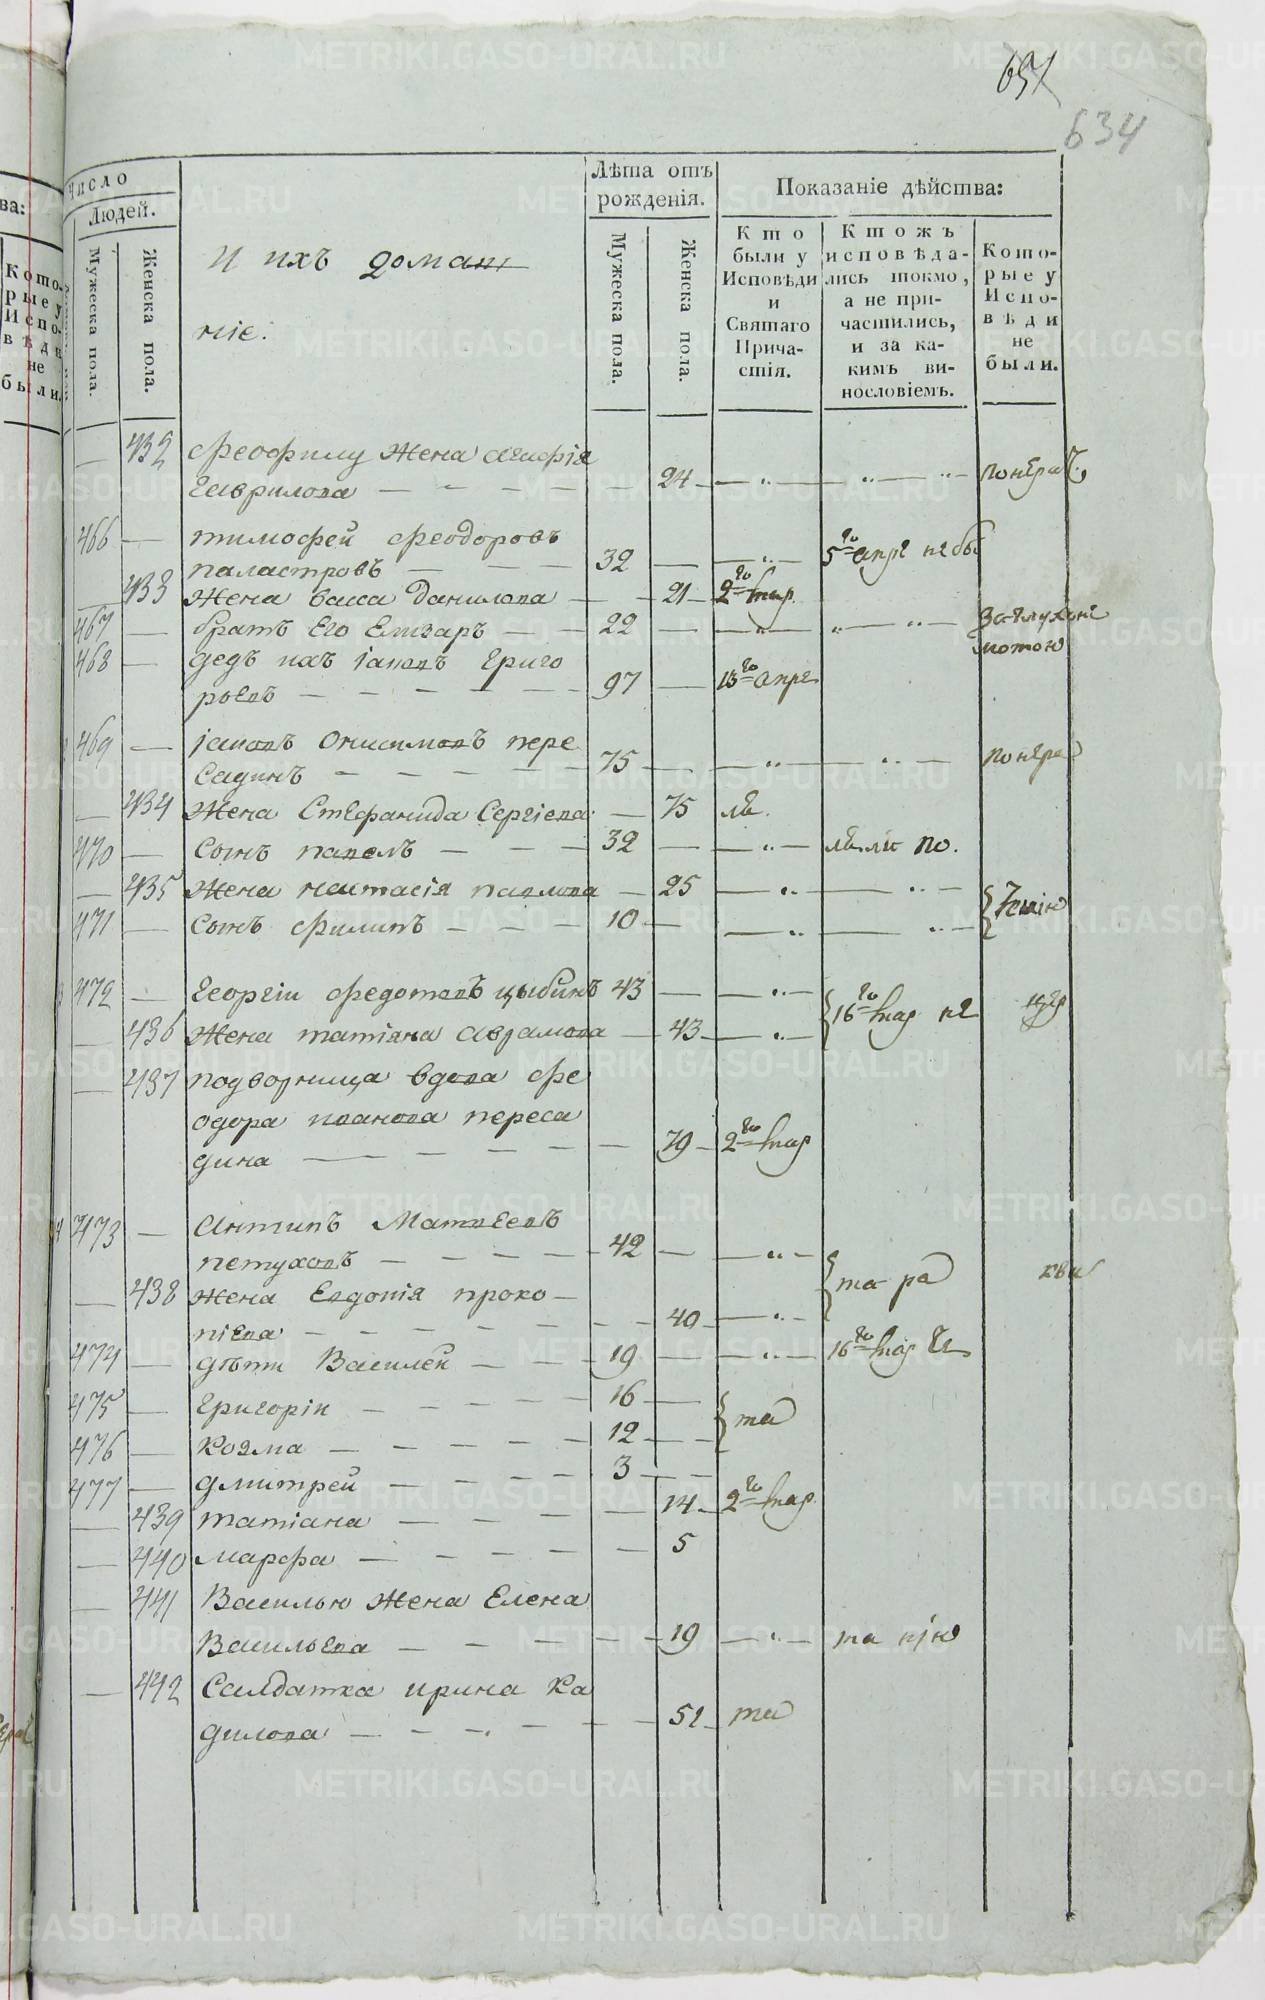 651
634
Число
Людей.
Мужеска пола.
Женска пола.
И ихъ домаш
ніе.
Лѣта отъ
рожденія.
Мужеска пола.
Женска пола.
Показаніе дѣйства:
Кто
были у
Исповѣди
и
Святаго
Прича-
стія.
Ктожъ
исповѣда-
лись токмо,
а не при-
частились,
и за ка-
кимъ ви-
нословіемъ.
Кото-
рые у
Испо-
вѣди
не
были.
432 Феофилу жена Агафія
Гаврилова — 24
466 — тимофей Феодоровъ
паластровъ — 32 —
433 жена васса данилова — 21 2го мар.
467 — братъ Его Елизаръ — 22 —
468 — дедъ ихъ іаковъ григо
рьевъ — 97 — 13го апре
469 — іаковъ Онисимовъ пере
садинъ — 75 —
434 жена Стефанида Сергіева — 75
470 — Сынъ павелъ — 32 —
435 жена настасія павлова — 25
471 — Сынъ филипъ — 10 —
472 — Георгіи федотовъ цыбинъ 43 —
16го мар не
436 жена татіана аврамова — 43
437 подворница вдова фе
одора иванова переса
дина — 79 2го мар
473 — Антипъ Матвеевъ
петуховъ — 42 —
та ра
438 жена Евдокія проко —
піева — 40
474 — дѣти Василей — 19 — 16го мар
475 — григоріи — 16 —
та
476 — козма — 12 —
477 — дмитрей — 3 —
439 татіана — 14 2го мар.
440 марфа — 5
441 Василью жена Елена
Васильева — 19
442 Салдатка ирина ка
дилова — 52 та